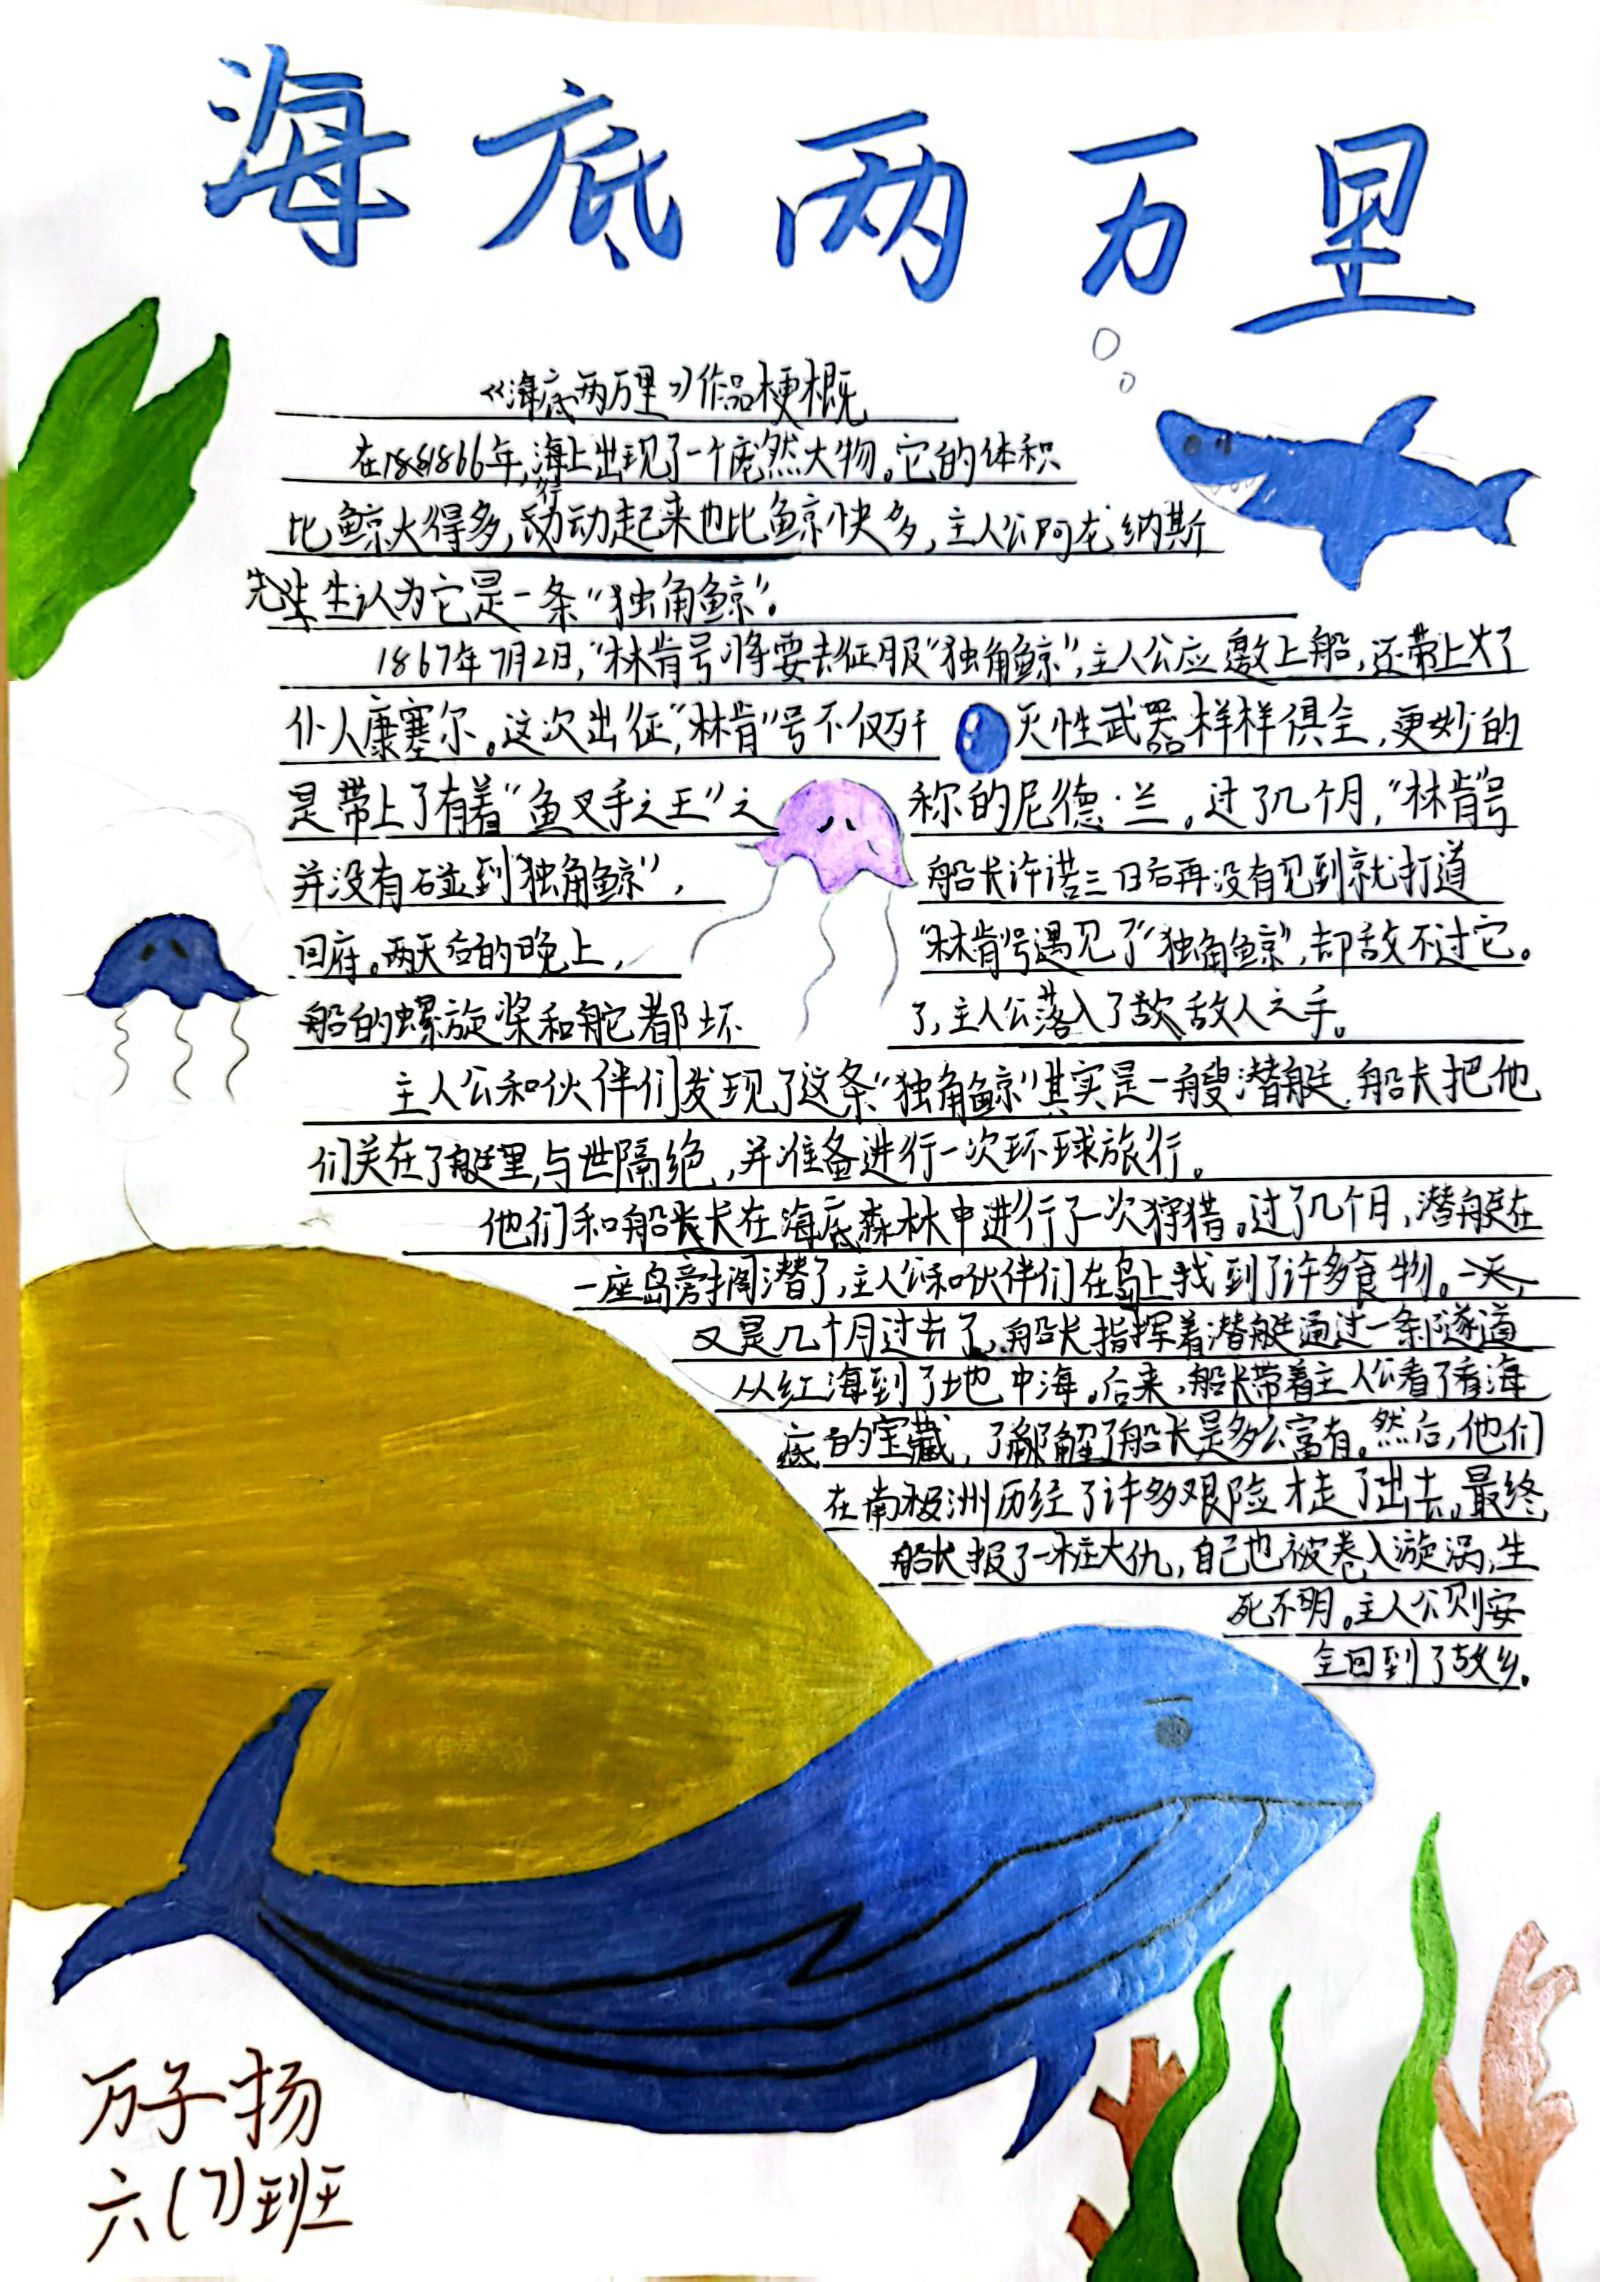 海底两万里
《海底两万里》作品梗概
在1866年,海上出现了一个庞然大物。它的体积
比鲸大得多,行动起来也比鲸快多,主人公阿龙纳斯
先生认为它是一条“独角鲸”。
1867年7月2日,“林肯号将要去征服“独角鲸”,主人公应邀上船,还带上了
仆人康塞尔。这次出征,“林肯”号不仅歼灭性武器样样俱全,更妙的
是带上了有着“鱼叉手之王”之称的尼德·兰。过了几个月,“林肯”号
并没有碰到“独角鲸”,船长许诺三日后再没有见到就打道
回府。两天后的晚上,“林肯”号遇见了“独角鲸”,却敌不过它。
船的螺旋桨和舵都坏了,主人公落入了敌人之手。
主人公和伙伴们发现了这条“独角鲸”其实是一艘潜艇,船长把他
们关在了艇里,与世隔绝,并准备进行一次环球旅行。
他们和船长在海底森林中进行了一次狩猎。过了几个月,潜艇在
一座岛旁搁潜了,主人公和伙伴们在岛上找到了许多食物。
又是几个月过去了,船长指挥着潜艇通过一条隧道
从红海到了地中海。后来,船长带着主人公看了看海
底的宝藏,了解了船长是多么富有。然后,他们
在南极洲历经了许多艰险才走了出去。最终,
船长报了一桩大仇,自己也被卷入漩涡,生
死不明。主人公则安
全回到了故乡。
万子扬
六(7)班